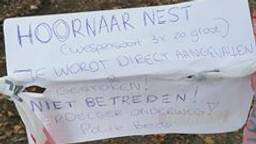 HOORNAAR NEST
(wespensoort 3x zo groot)
JE WORDT DIRECT AANGEVALLEN
&
GESTOKEN!
NIET BETREDEN!
VERDELGER ONDERWEG!
Politie